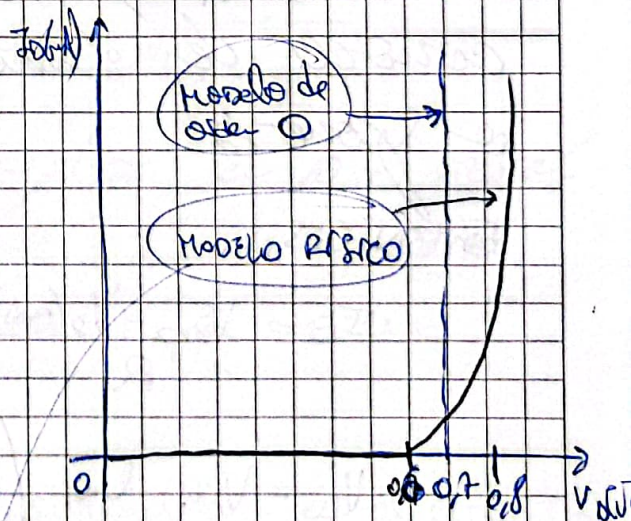 ID(mA)
MODELO de
orden O
MODELO FÍSICO
0
0,6
0,7
0,8
VD(V)